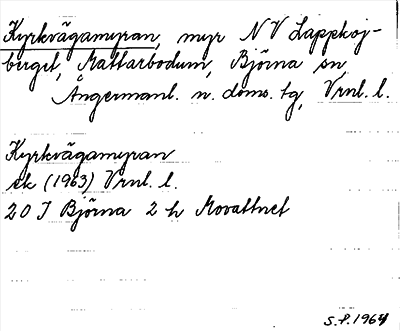 Kyrkvägamyran, myr NV Lappkoj-
berget, Mattarbodum, Björna sn
Ångermanl. n. doms. tg, Vrnl. l.
Kyrkvägamyran
ek (1963) Vrnl. l.
20 I Björna 2 h Movattnet
S.P. 1964